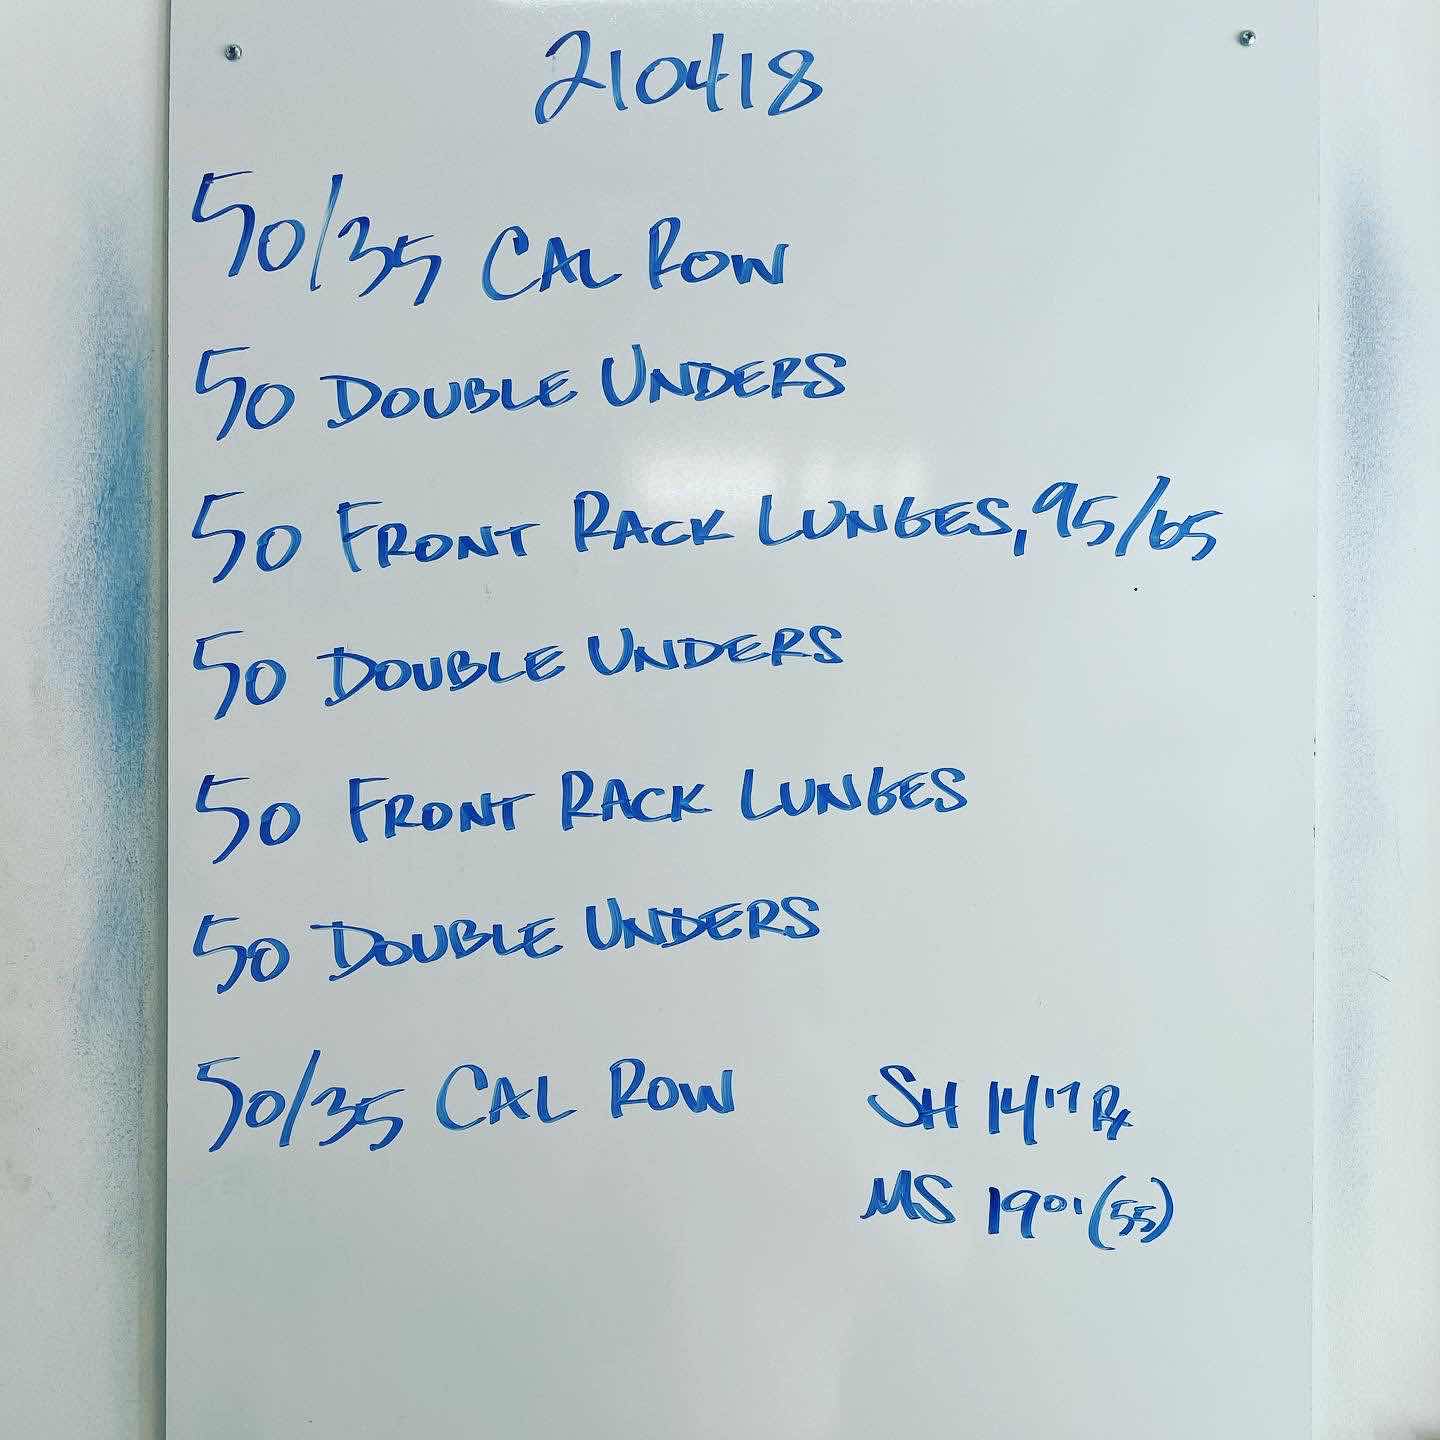 210418
50/35 CAL ROW
50 DOUBLE UNDERS
50 FRONT RACK LUNGES, 95/65
50 DOUBLE UNDERS
50 FRONT RACK LUNGES
50 DOUBLE UNDERS
50/35 CAL ROW
SH 14¹⁷ Rx
MS 19⁰¹ (55)